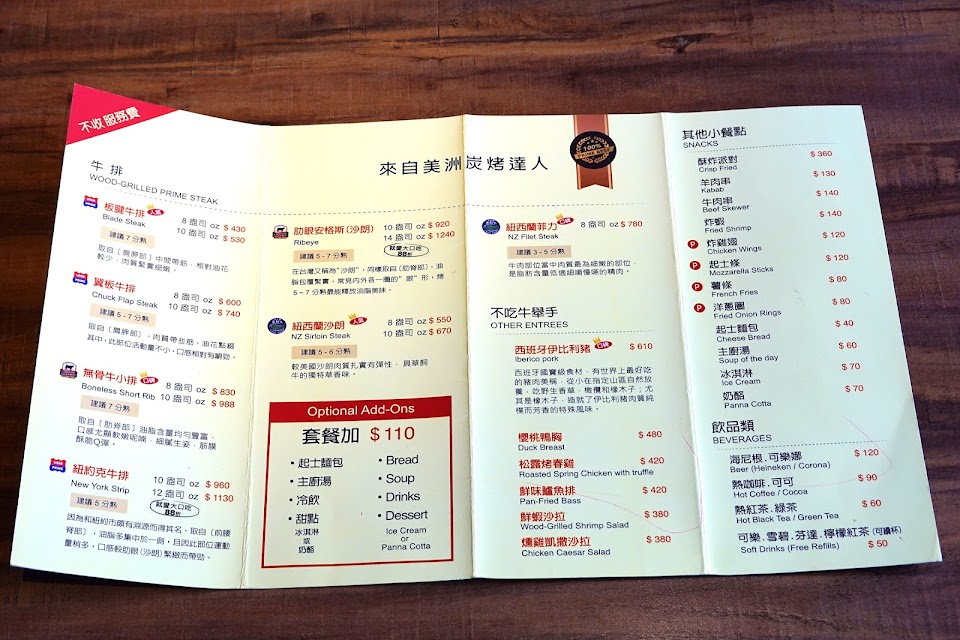 不收服務費
牛排
WOOD-GRILLED PRIME STEAK
板腱牛排 人氣
Blade Steak
8 盎司 oz $ 430
10 盎司 oz $ 530
建議 7 分熟
取自〔肩胛部〕中間帶筋，相對油花
較少，肉質緊實細嫩。
翼板牛排
Chuck Flap Steak
8 盎司 oz $ 600
10 盎司 oz $ 740
建議 5 - 7 分熟
取自〔肩胛部〕，肉質帶些筋，油花點綴
其中，此部位活動量不小，口感相對有嚼勁。
無骨牛小排 口碑
Boneless Short Rib
8 盎司 oz $ 830
10 盎司 oz $ 988
建議 7 分熟
取自〔肋脊部〕油脂含量均勻豐富，
口感尤顯軟嫩呢喃，細膩生姿，筋膜
酥脆Q彈。
紐約克牛排
New York Strip
10 盎司 oz $ 960
12 盎司 oz $ 1130
建議 5 分熟
就愛大口吃
88折
因為和紐約市頗有淵源而得其名，取自〔前腰
脊部〕，油脂多集中於一側，且因此部位運動
量稍多，口感較肋眼(沙朗)緊緻而帶勁。
來自美洲炭烤達人
100%
肋眼安格斯(沙朗)
Ribeye
10 盎司 oz $ 920
14 盎司 oz $ 1240
建議 5 - 7 分熟
就愛大口吃
88折
在台灣又稱為"沙朗"，同樣取自〔肋脊部〕，油
脂包覆緊實。常見內外各一圈的"眼"形，烤
5 ~ 7 分熟最能釋放油脂美味。
紐西蘭沙朗 人氣
NZ Sirloin Steak
8 盎司 oz $ 550
10 盎司 oz $ 670
建議 5 - 6 分熟
較美國沙朗肉質扎實有彈性，具草飼
牛的獨特草香味。
Optional Add-Ons
套餐加 $ 110
• 起士麵包 • Bread
• 主廚湯 • Soup
• 冷飲 • Drinks
• 甜點 • Dessert
冰淇淋 Ice Cream
或 or
奶酪 Panna Cotta
紐西蘭菲力 口碑
NZ Filet Steak
8 盎司 oz $ 780
建議 3 - 5 分熟
牛肉部位當中肉質最為細嫩的部位，
是脂肪含量低週細讀慢嚥的精肉。
不吃牛舉手
OTHER ENTREES
西班牙伊比利豬 口碑 $ 610
Iberico pork
西班牙國寶級食材，有世界上最好吃
的豬肉美稱，從小在指定山區自然放
養，吃野生香草，橄欖和橡木子；尤
其是橡木子，造就了伊比利豬肉質純
樸而芳香的特殊風味。
櫻桃鴨胸 $ 480
Duck Breast
松露烤春雞 $ 420
Roasted Spring Chicken with truffle
鮮味鱸魚排 $ 420
Pan-Fried Bass
鮮蝦沙拉 $ 380
Wood-Grilled Shrimp Salad
燻雞凱撒沙拉 $ 380
Chicken Caesar Salad
其他小餐點
SNACKS
酥炸派對 $ 360
Crisp Fried
羊肉串 $ 130
Kabab
牛肉串 $ 140
Beef Skewer
炸蝦 $ 140
Fried Shrimp
P 炸雞翅 $ 120
Chicken Wings
P 起士條 $ 120
Mozzarella Sticks
P 薯條 $ 80
French Fries
P 洋蔥圈 $ 80
Fried Onion Rings
起士麵包 $ 40
Cheese Bread
主廚湯 $ 60
Soup of the day
冰淇淋 $ 70
Ice Cream
奶酪 $ 70
Panna Cotta
飲品類
BEVERAGES
海尼根.可樂娜 $ 120
Beer (Heineken / Corona)
熱咖啡.可可 $ 90
Hot Coffee / Cocoa
熱紅茶.綠茶 $ 60
Hot Black Tea / Green Tea
可樂.雪碧.芬達.檸檬紅茶 (可續杯)
Soft Drinks (Free Refills) $ 50